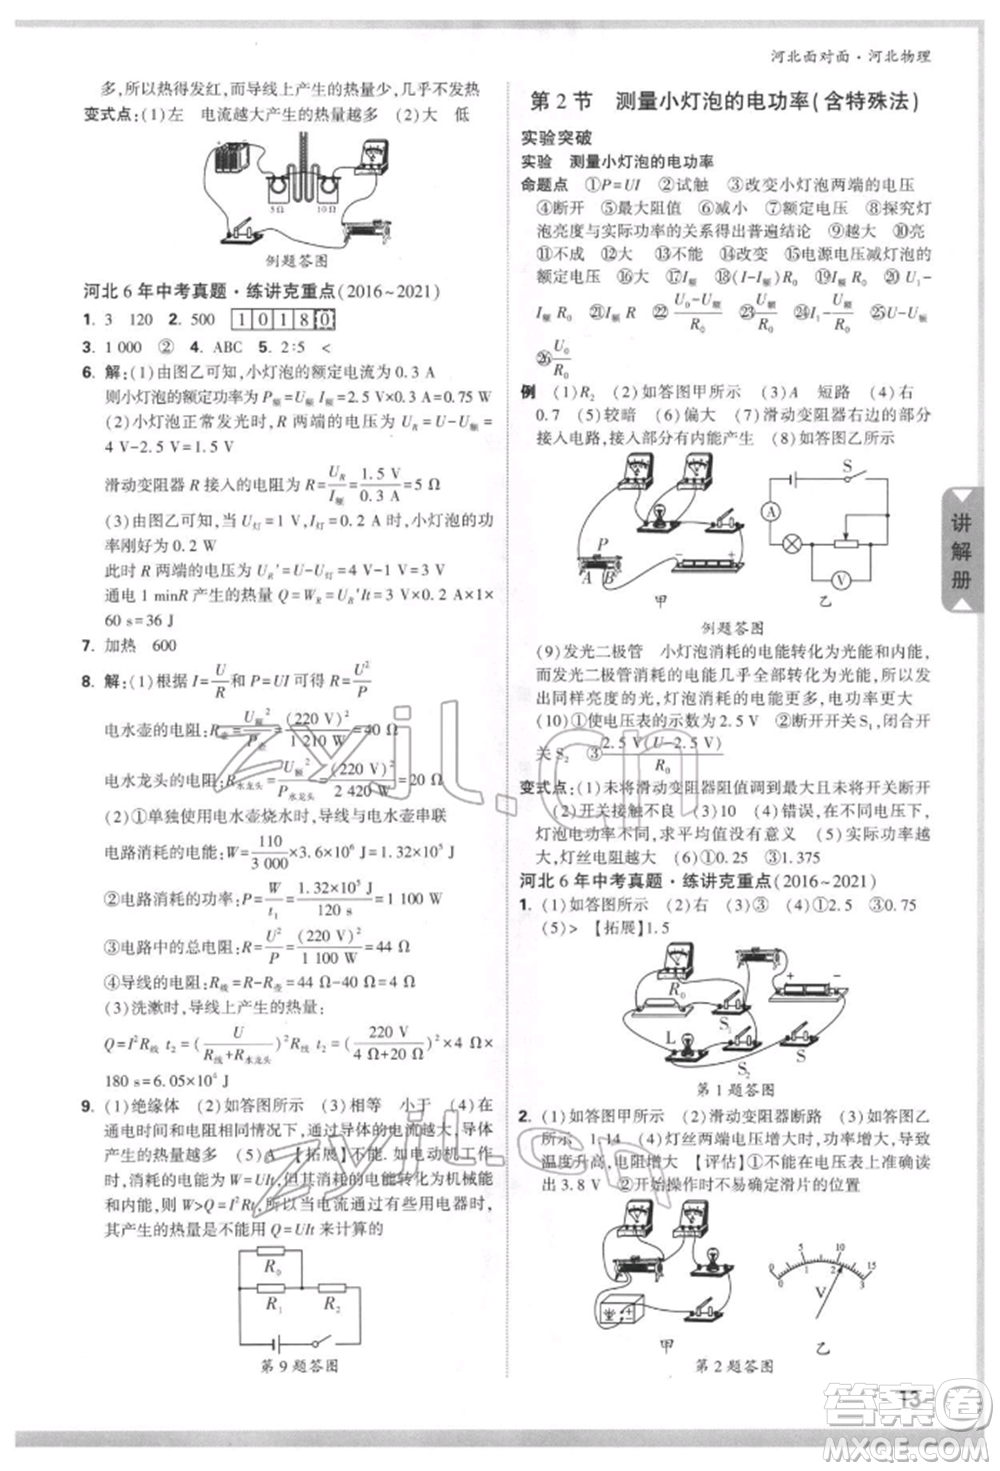 河北面对面·河北物理
多,所以热得发红,而导线上产生的热量较少,几乎不发热
变式点:(1)左 电流越大产生的热量越多 (2)大 低
5 Ω 10 Ω
例题答图
河北6年中考真题·练讲克重点(2016~2021)
1. 3 120 2. 500 1 0 1 8 0
3. 1 000 ② 4. ABC 5. 2∶5 <
6. 解:(1)由图乙可知,小灯泡的额定电流为0.3 A
则小灯泡的额定功率为P额=U额I额=2.5 V×0.3 A=0.75 W
(2)小灯泡正常发光时,R两端的电压为U_R=U-U额=
4 V-2.5 V=1.5 V
滑动变阻器R接入的电阻为R=U_R/I额=1.5 V/0.3 A=5 Ω
(3)由图乙可知,当U灯=1 V,I实=0.2 A时,小灯泡的功
率刚好为0.2 W
此时R两端的电压为U_R′=U-U灯=4 V-1 V=3 V
通电1 minR产生的热量Q=W_R=U_R′It=3 V×0.2 A×1×
60 s=36 J
7. 加热 600
8. 解:(1)根据I=U/R和P=UI可得R=U²/P
电水壶的电阻:R壶=U额²/P壶=(220 V)²/1 210 W=40 Ω
电水龙头的电阻:R水龙头=U额²/P水龙头=(220 V)²/2 420 W=20 Ω
(2)①单独使用电水壶烧水时,导线与电水壶串联
电路消耗的电能:W=110/3 000×3.6×10⁶ J=1.32×10⁵ J
②电路消耗的功率:P=W/t₁=1.32×10⁵ J/120 s=1 100 W
③电路中的总电阻:R=U²/P=(220 V)²/1 100 W=44 Ω
④导线的电阻:R线=R-R壶=44 Ω-40 Ω=4 Ω
(3)洗漱时,导线上产生的热量:
Q=I²R线t₂=(U/(R线+R水龙头))²R线t₂=(220 V/(4 Ω+20 Ω))²×4 Ω×
180 s=6.05×10⁴ J
9. (1)绝缘体 (2)如答图所示 (3)相等 小于 (4)在
通电时间和电阻相同情况下,导体的电流越大,导体
产生的热量越多 (5)A 【拓展】不能.如电动机工作
时,消耗的电能为W=UIt,但其产生的热能转化为机械能
和内能,所以W>Q=I²Rt,故当电流通过有些用电器时,
其产生的热量是不能用Q=UIt来计算的
R₀
R₁ R₂
第9题答图
第2节 测量小灯泡的电功率(含特殊法)
实验突破
实验 测量小灯泡的电功率
命题点 ①P=UI ②试触 ③改变小灯泡两端的电压
④断开 ⑤最大阻值 ⑥减小 ⑦额定电压 ⑧探究灯
泡亮度与实际功率的关系得出普遍结论 ⑨越大 ⑩亮
⑪不成 ⑫大 ⑬不能 ⑭大 ⑮电源电压减灯泡的额
定电压 ⑯大
I额 R₀
㉖U₀/R₀
例 (1)R₂ (2)如答图甲所示 (3)A 短路 (4)右
0.7 (5)较暗 (6)偏大 (7)滑动变阻器右边的部分
接入电路,接入部分有内能产生 (8)如答图乙所示
P
A B
甲
S
A
V
乙
例题答图
(9)发光二极管 小灯泡消耗的电能转化为光能和内能,
而发光二极管消耗的电能几乎全部转化为光能,所以
发出同样亮度的光,灯泡消耗的电能更多,电功率更大
(10)①使电压表的示数为2.5 V ②断开开关S₁,闭合开
关S₂ ③2.5 V(U-2.5 V)/R₀
变式点:(1)未将滑动变阻器阻值调到最大就闭合开关
(2)开关接触不良 (4)错误,在不同电压下,
灯泡电功率不同,求平均值没有意义 (5)实际功率越
大,灯丝电阻越大 (6)①0.25 ②1.375
河北6年中考真题·练讲克重点(2016~2021)
1. (1)如答图所示 (2)右 (3)③ (4)①S₁ ③0.75
(5)> 【拓展】1.5
R₀
S₁
L
S₂
S
第1题答图
2. (1)如答图甲所示 (2)滑动变阻器断路 (3)如答图乙
所示 1.14 (4)灯丝两端电压增大时,功率增大,
温度升高,电阻增大 【评估】①不能在电压表上准确读
出3.8 V ②开始操作时不易确定滑片的位置
甲
0 5 10 15
0 1 2 3
V
乙
第2题答图
讲解册
13
答案圈
MXQE.COM
zyjl.cn
zyjl.cn